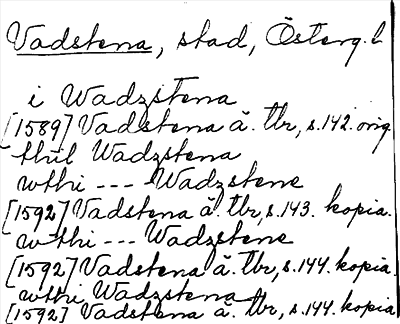 Vadstena, stad, Österg. l
i Wadzstena
[1589] Vadstena ä. tbr, s. 142. orig.
thil Wadzstena
wthi --- Wadzstene
[1592] Vadstena ä. tbr, s. 143. kopia.
wthi --- Wadzstene
[1592] Vadstena ä. tbr, s. 144. kopia.
wthi Wadzstena
[1592] Vadstena ä. tbr, s. 144. kopia